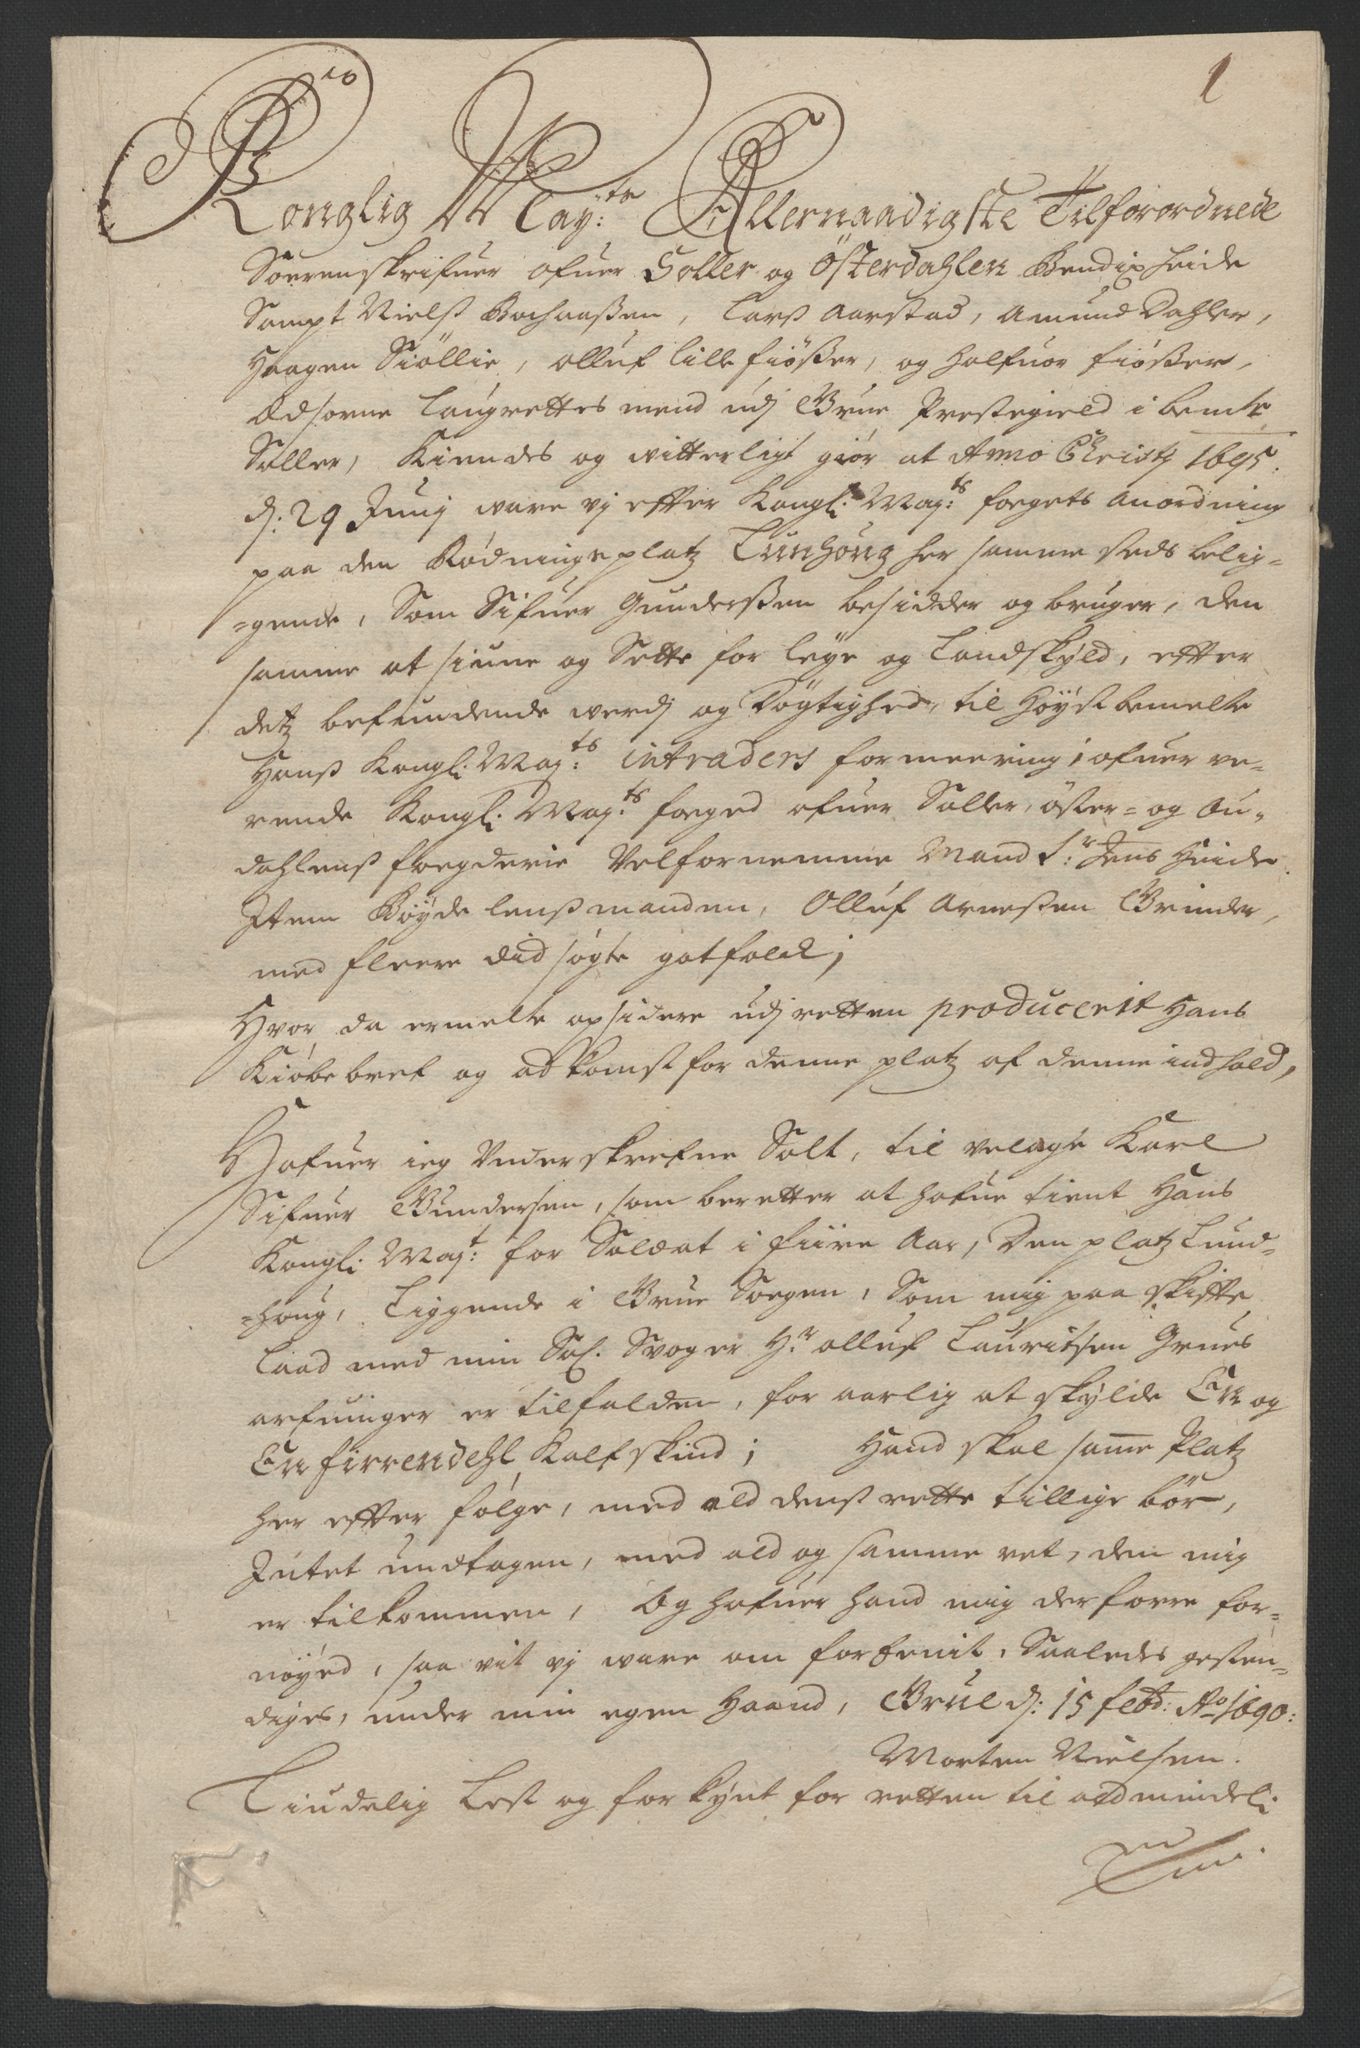 1
Konglig May:ts Allernaadigste Tilforordnede
Sorrenskrifuer ofuer Soller og Österdahlen Bendix heide
Sampt Nielß Bochaaßen, Larß Aarstad, Amund Dahler,
Haagen Siöllie, olluf lille fiößer, og halfuor fiößer,
Edsorne Laugrettes mend udj Grue Prestegield i bemte
Soller, Kiendes og witterligt giör at Anno Christj 1695.
d: 29 Junj ware vj effter Kongl: May:ts fogets anordning
paa den Rödnings platz Lunhoug her samme steds belig=
=gende, Som Sifuer Gunderßen besidder og bruger, den
samme at siune og Sette for leye og Landskyld, efter
detz befindende werdj og Dögtighed, til Höyst bemelte
Hanß Kongl: May:ts intraders formeering; ofuer ve=
rende Kongl: May:ts foeged ofuer Soller, öster= og Gu=
dahlenß foegderie Velfornemme Mand Sr: Jens Heide
Item Böyde lenßmanden, Olluf Arneßen Grinder,
med fleere did søgte gotfolck;
Hvor da ermelte opsidere udj retten producerit Hans
Kiöbebref og adkomst for denne platz af denne indhold,
Hafuer ieg Underskrefne Solt, til velagte Karl
Sifuer Gundersen, som beretter at hafue tient Hans
Kongl: May:t for Soldat i fiire Aar, Den platz Lund=
=houg, Liggende i Grue Soegen, Som mig paa skiffte
Laad med min Sal. Svoger Hr. olluf Lauritsen Grues
arfuinger er tilfalden, for aarlig at skylde En og
En firrendehl Kalfskind; Hand skal samme Platz
her effter fölge, med ald denß rette tillige bör,
Intet undtagen, med ald og samme ret, den mig
er tilkommen, Og hafuer hand mig derforre for=
nöyed, saa vit vj ware om forbenit, Saaledes gesten=
diges, under min egen Haand, Grue d: 15 febr: Ao 1690:
Morten Nielsen.
Tiudelig Lest og forkynt for retten til aldmindeli